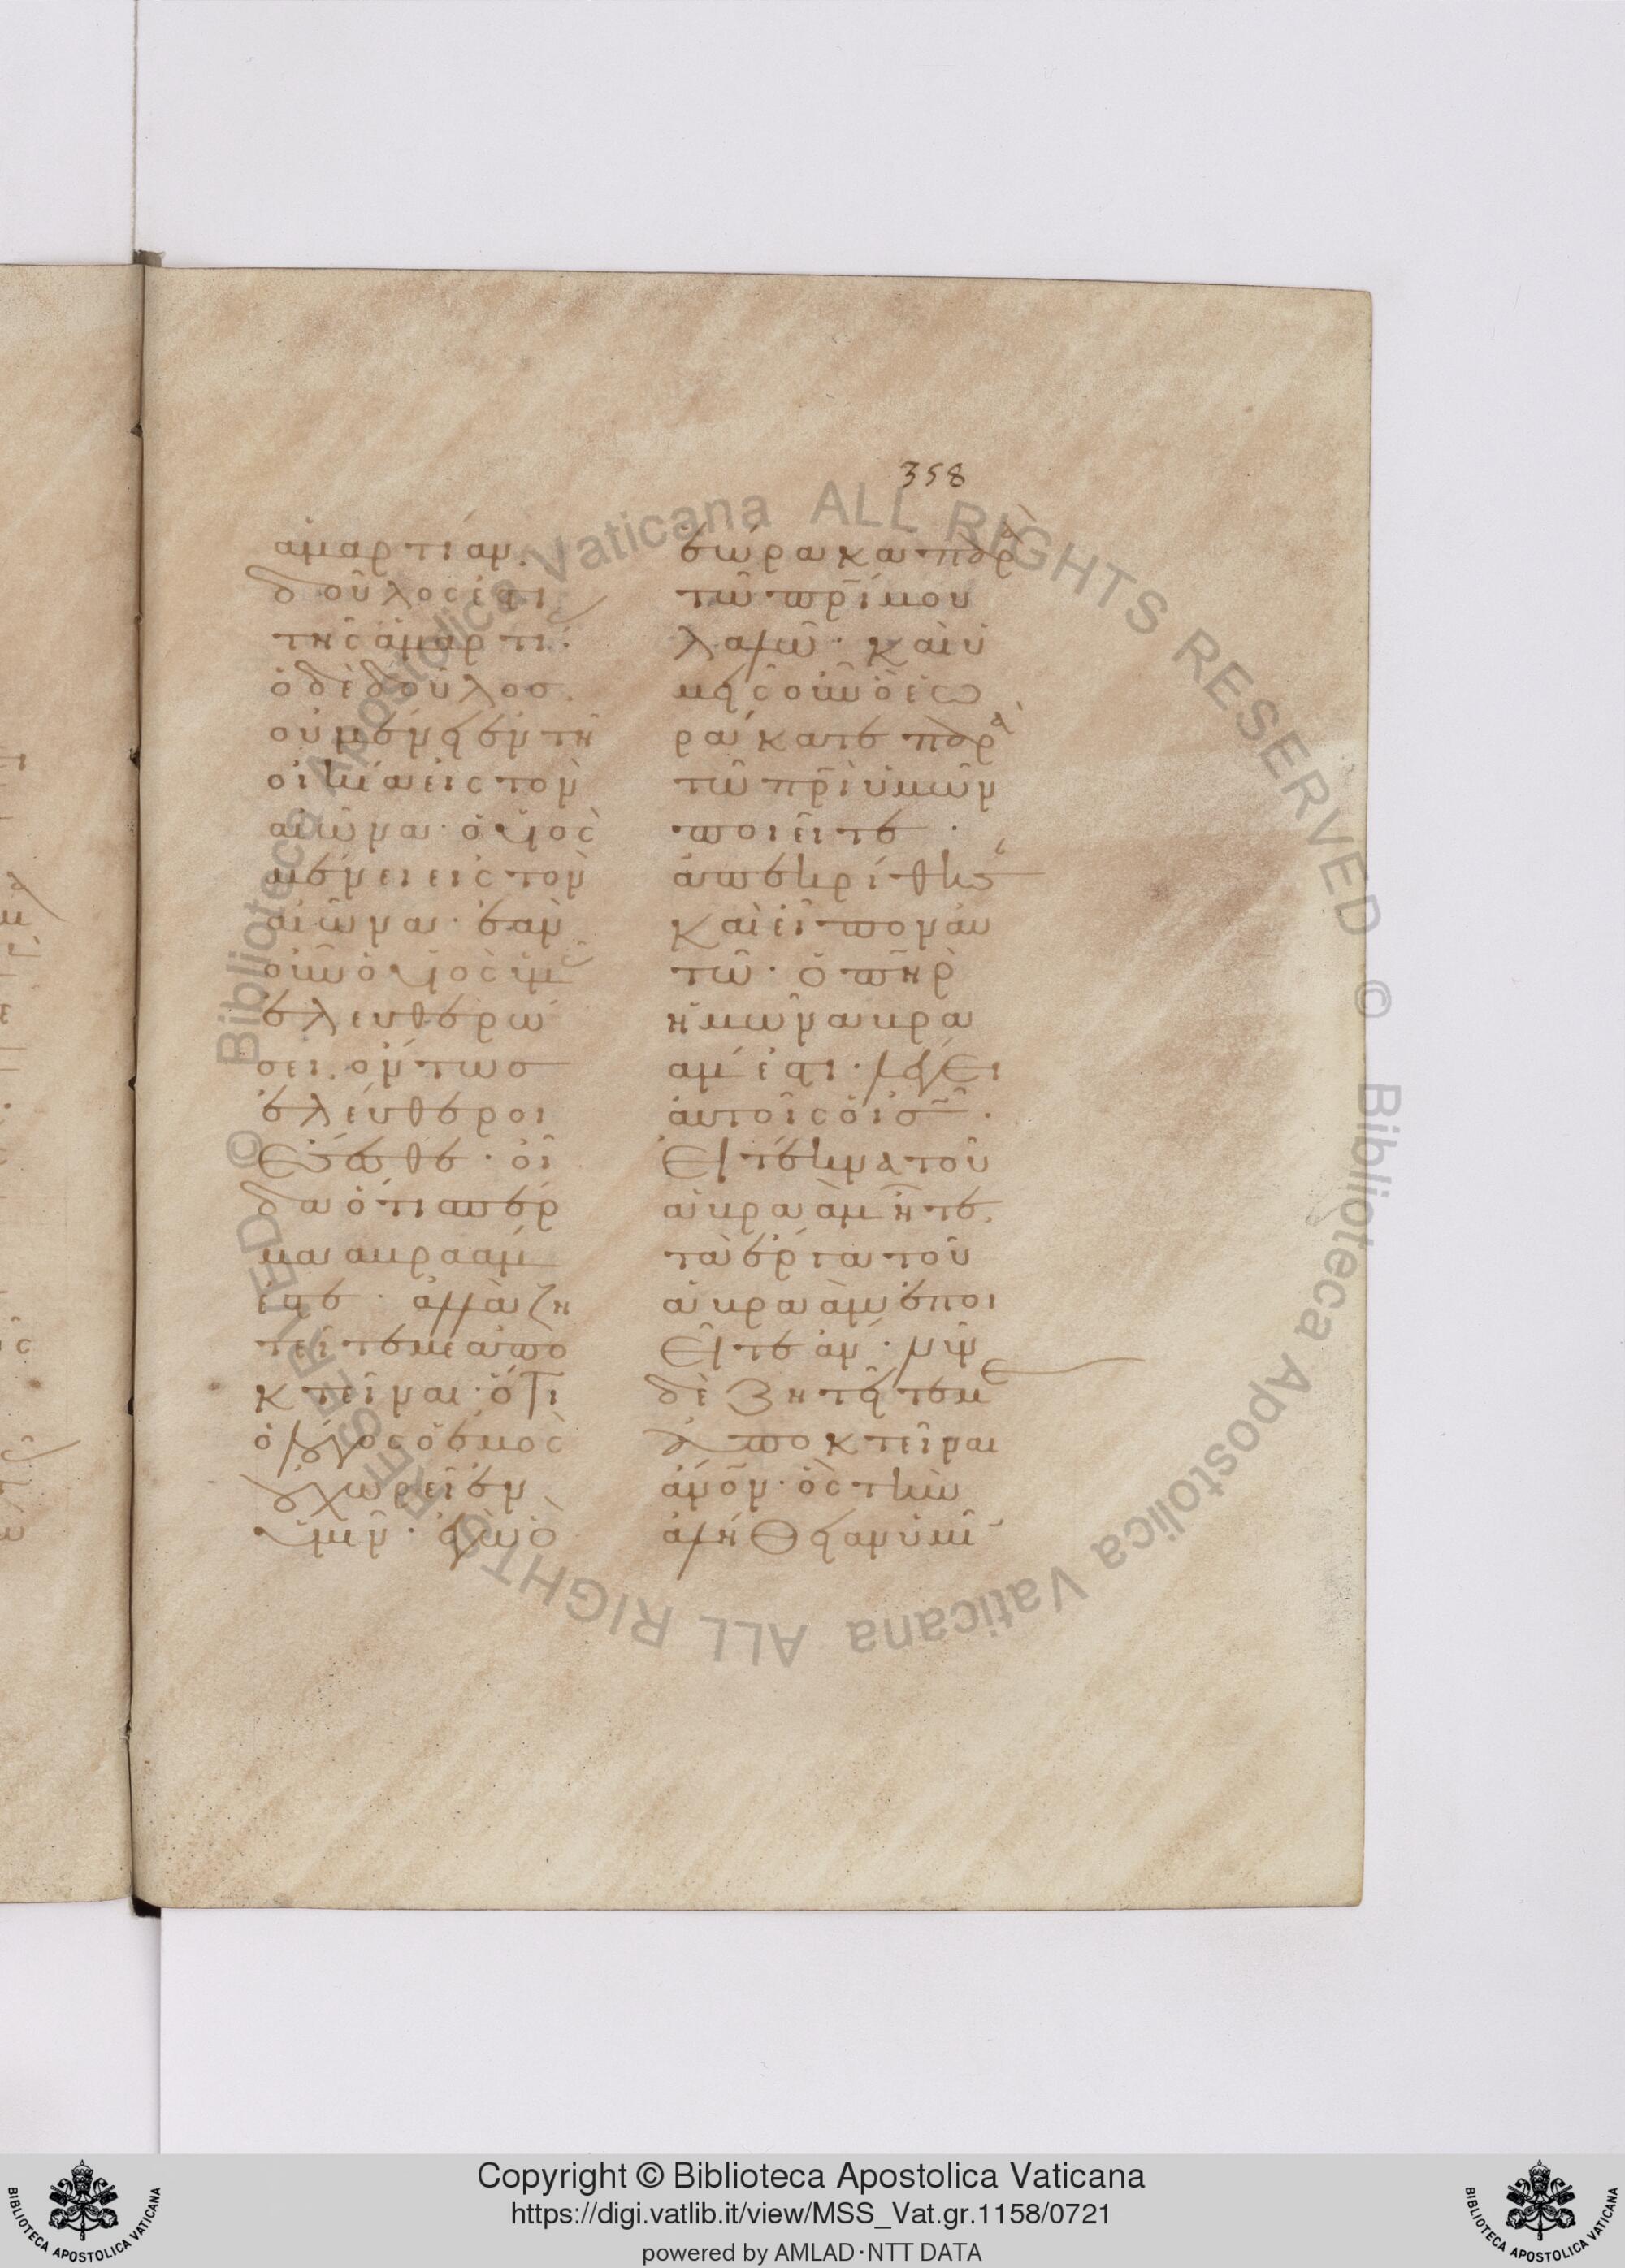 358
ἁμαρτίαν.
δοῦλός ἐστι
τῆς ἁμαρτί(ας)·
ὁ δὲ δοῦλοσ.
οὐ μένει ἐν τῆ
οἰκία εἰς τὸν
αἰῶνα· ὁ υἱὸς
μένει εἰς τὸν
αἰῶνα· ἐὰν
οὖν ὁ υἱὸς ὑμᾶς
ἐλευθερώ
σει. ὄντωσ
ἐλεύθεροι
ἔσεσθε· οἶ
δα ὅτι σπέρ
μα αβρααμ
ἐστε· ἀλλὰ ζη
τεῖτε με ἀπο
κτεῖναι· ὅτι
ὁ λόγος ὁ ἐμὸς
οὐ χωρεῖ ἐν
ὑμῖν· ἐγὼ ὃ
ἑώρακα παρὰ
τῶ πρί μου
λαλῶ· καὶ ὑ
μεῖς οὖν ὃ ἑω
ράκατε παρὰ
τῶ πρὶ ὑμῶν
ποιεῖτε·
ἀπεκρίθησ(αν)
καὶ εἶπον αὐ
τῶ· ὁ πηρ
ἡμῶν αβρα
άμ ἐστι· λέγει
αὐτοῖς ὁ ισ·
εἰ τέκνα τοῦ
αβραὰμ ἦτε.
τὰ ἔργα τοῦ
αβραὰμ ἐποι
εῖτε ἄν· νῦν
δὲ ζητεῖτε με
ἀποκτεῖναι
ἄνον· ὃς τὴν
ἀλήθειαν ὑμῖ(ν)
Copyright © Biblioteca Apostolica Vaticana
https://digi.vatlib.it/view/MSS_Vat.gr.1158/0721
powered by AMLAD·NTT DATA
BIBLIOTECA APOSTOLICA VATICANA
BIBLIOTECA APOSTOLICA VATICANA
© Biblioteca Apostolica Vaticana ALL RIGHTS RESERVED © Biblioteca Apostolica Vaticana ALL RIGHTS RESERVED